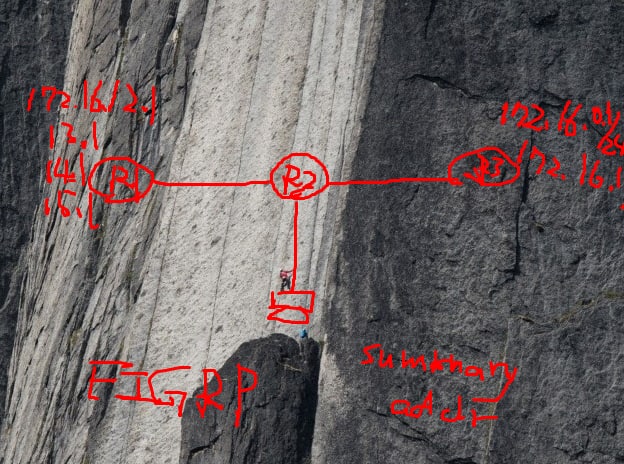 172.16.12.1
13.1
14.1
15.1
R1
R2
R3
172.16.0.1/24
172.16.1
EIGRP
summary
addr